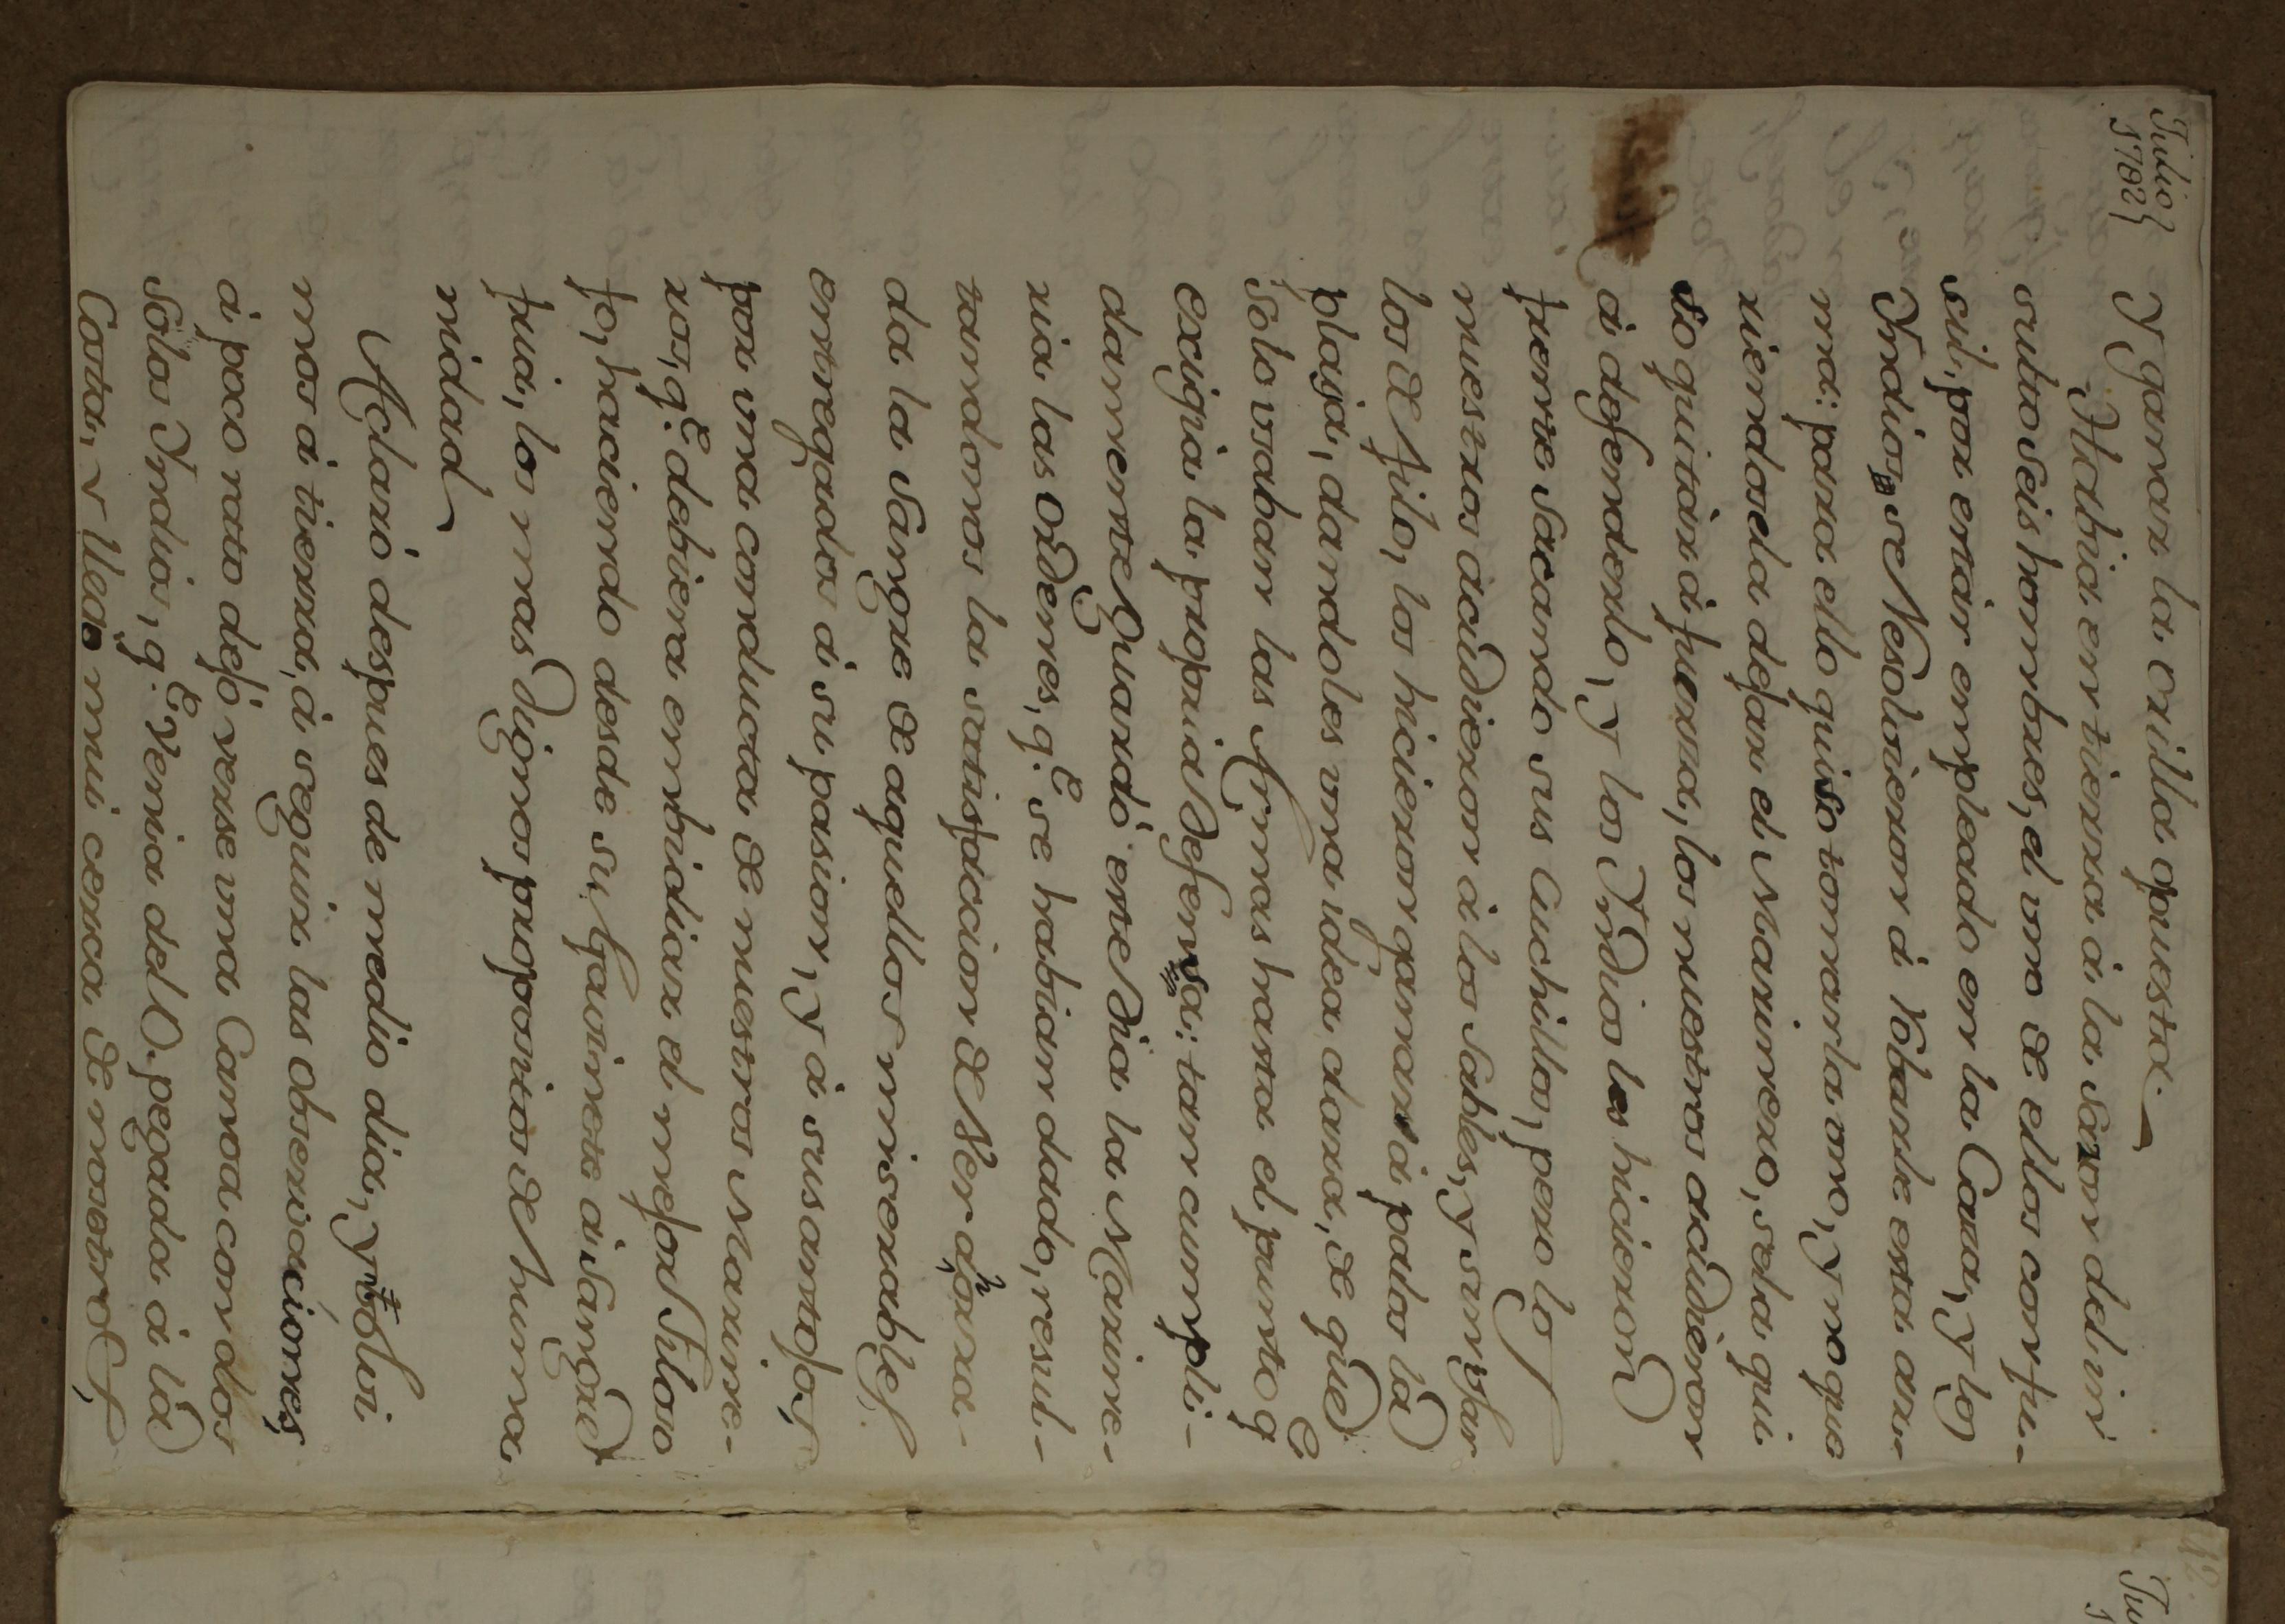 Julio
1792
Y ganar la orilla opuesta.
Habia en tierra á la sazon del in
sulto seis hombres, el uno de ellos con fu-
sil, por estár empleado en la Caza, y los
Indios se resolvieron á robarle esta ar-
ma: para ello quiso tomarla uno, y no que
riendosela dejar el Marinero, sela qui
so quitár á fuerza, los nuestros acudieron
á defenderlo, y los Indios les hicieron
frente sacando sus cuchillos, pero los
nuestros acudieron á los sables, y sin usar
los de filo, los hicieron ganar á palos la
plaja, dandoles una idea clara, de que
solo usaban las Armas hasta el punto q.e
exigia la propia defensa: tan cumpli-
damente guardó este dia la Marine-
ria las ordenes, q.e se habian dado, resul-
tandonos la satisfaccion de ver ahora-
da la sangre de aquellos miserables
entregados á su pasion, y á sus antojos,
por una conducta de nuestros Marine-
ros, q.e debiera embidiar el mejor Filoso
fo, haciendo desde su Gavinete á sangre
fria, los mas dignos propositos de huma
nidad
Aclaró despues de medio dia, y volvi
mos á tierra, á seguir las observaciones
á poco rato dejó verse una Canoa con dos
solos Indios, q.e venia del O. pegada á la
Costa, y llegó mui cerca de nosotros,
12.
Ju